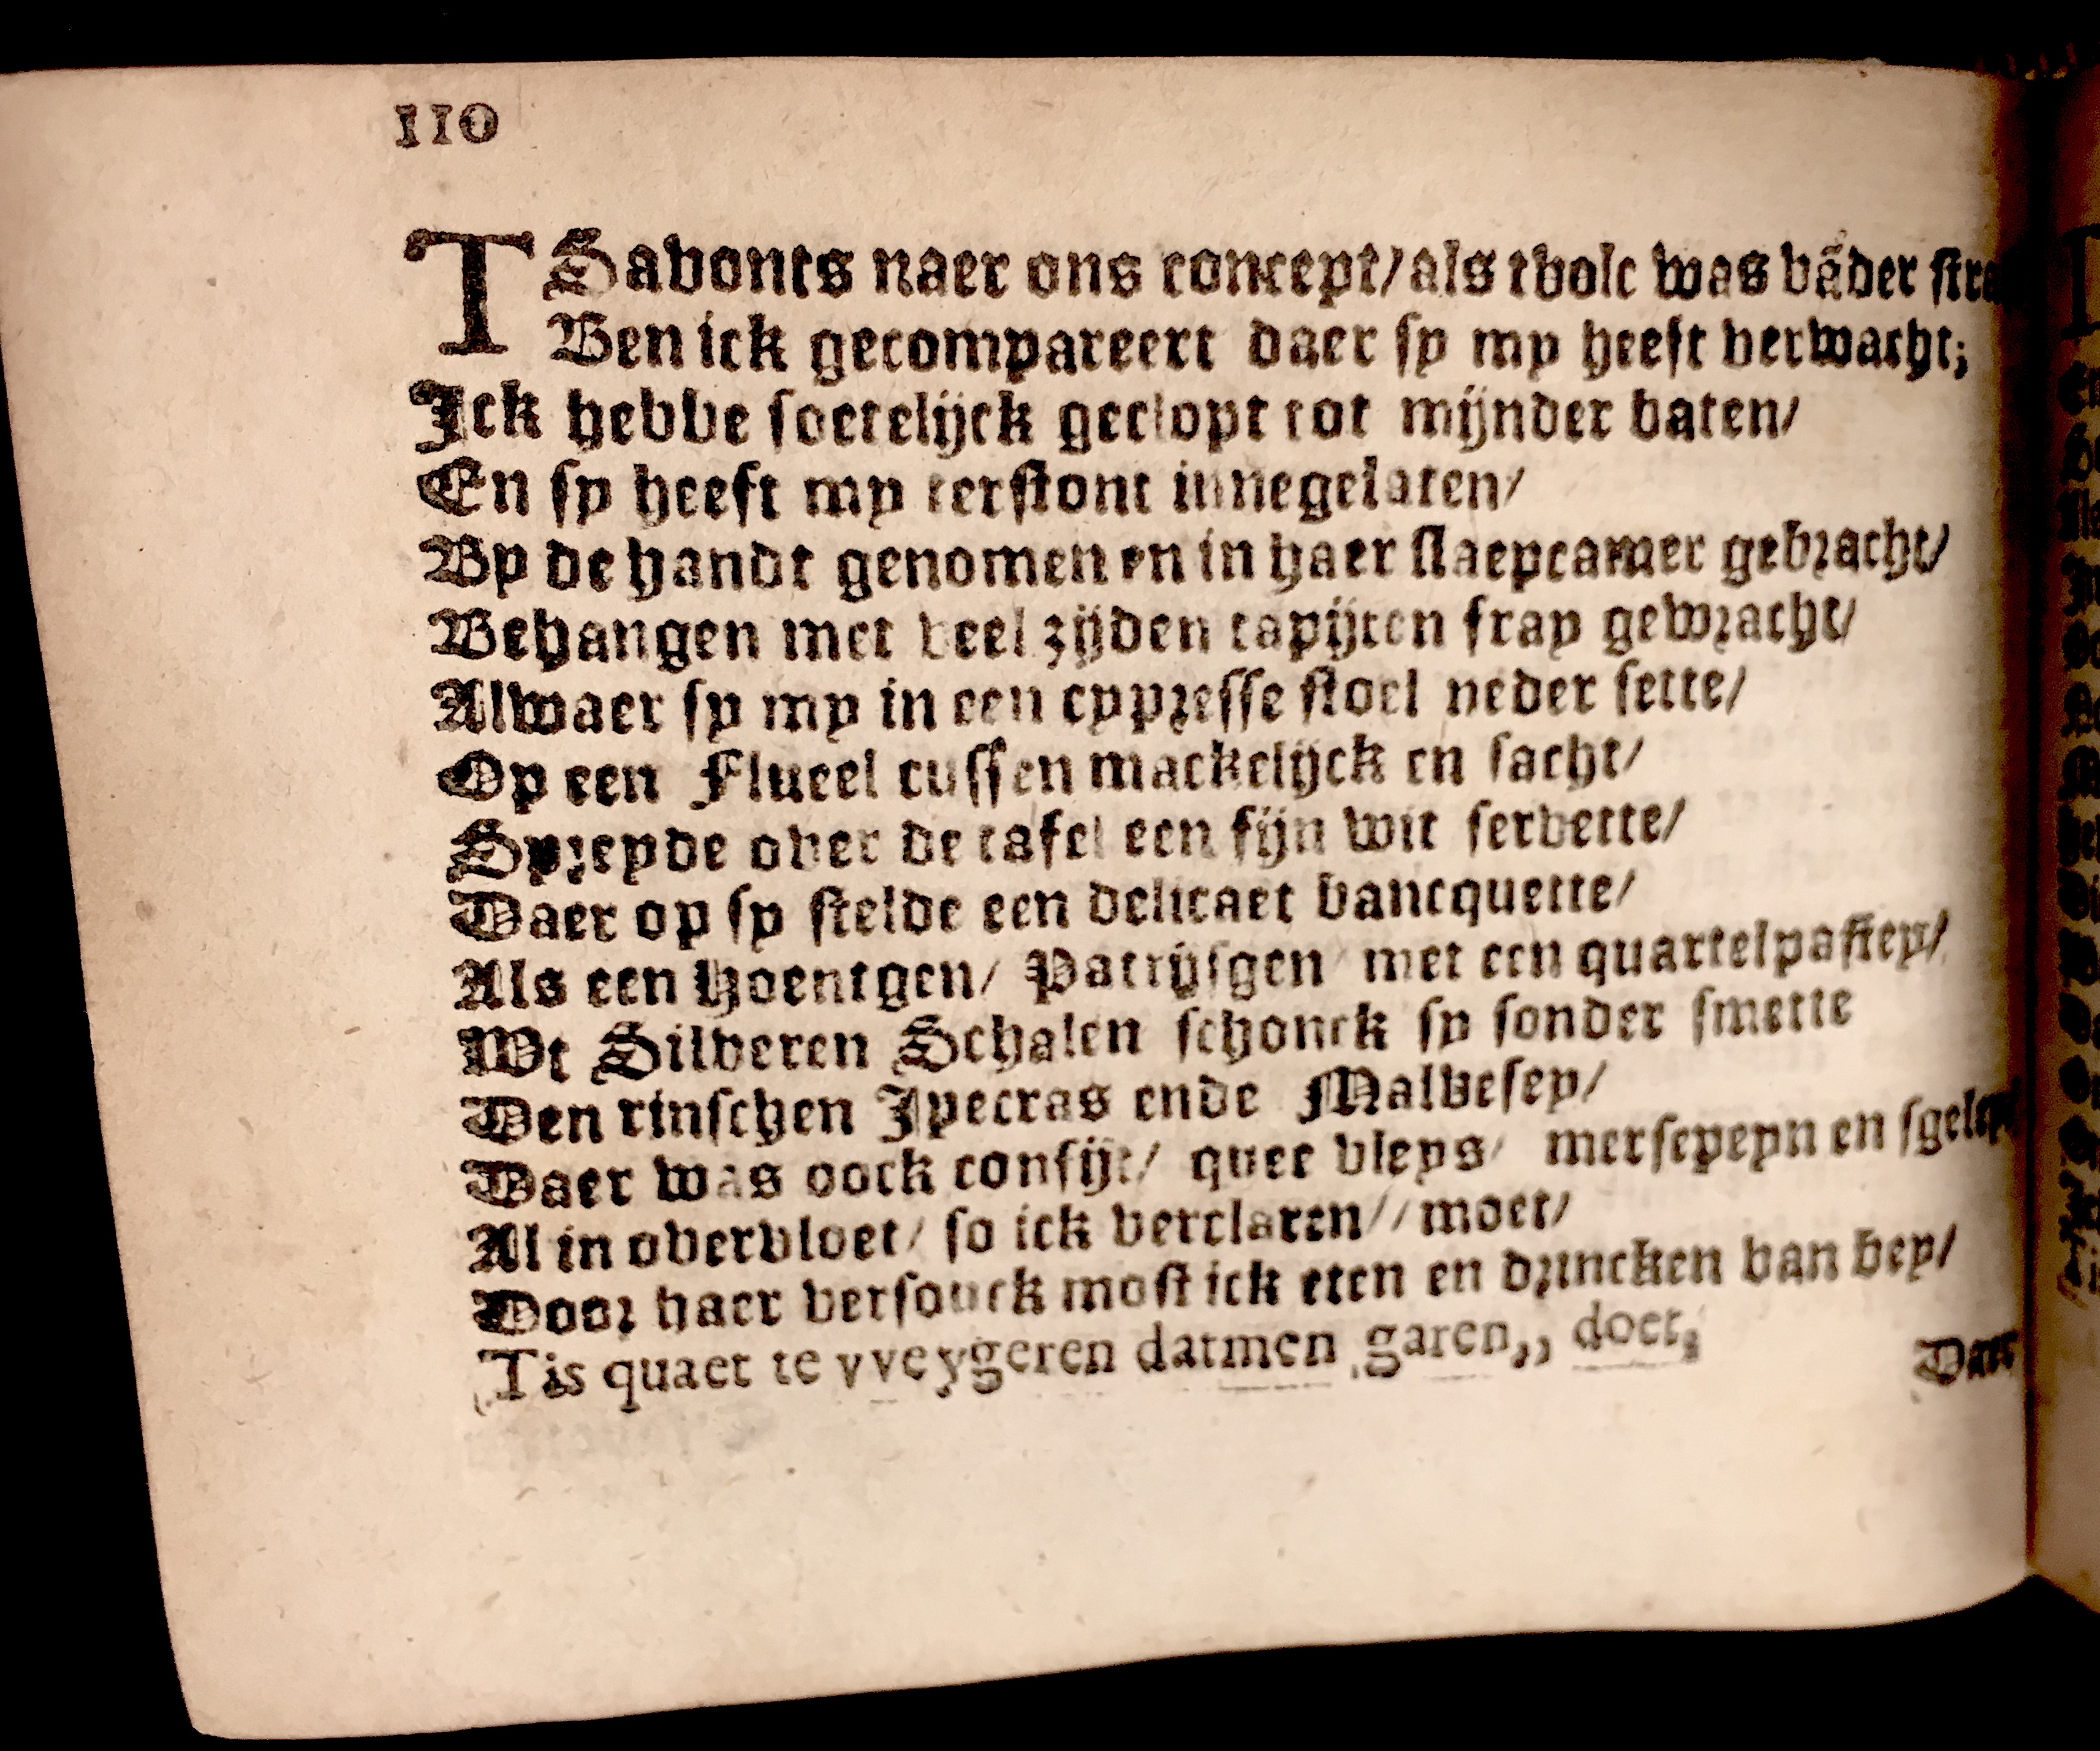 110
TSavonts naer ons concept/ als tvolc was vãder stra
Ben ick gecompareert daer sy my heeft verwacht;
Ick hebbe soetelijck geclopt tot mijnder baten/
En sy heeft my terstont innegelaten/
By de handt genomen en in haer slaepcamer gebracht/
Behangen met veel zijden tapijten fray gewracht/
Alwaer sy my in een cypresse stoel neder sette/
Op een Flueel cussen mackelijck en sacht/
Spreyde over de tafel een fijn wit servette/
Daer op sy stelde een delicaet bancquette/
Als een Hoentgen/ Patrijsgen/ met een quartelpastey/
Wt Silveren Schalen schonck sy sonder smette
Den rinschen Ipecras ende Malvesey/
Daer was oock confijt/ quee vleys/ mersepeyn en
Al in overvloet/ so ick verclaren// moet/
Door haer versouck most ick eten en drincken van bey/
Tis quaet te vveygeren datmen garen,, doet,
Daer